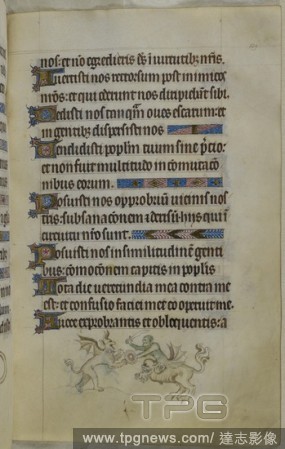 nos: et nō egredieris ds̄ ī uirtutibȝ nr̄is.
Auertisti nos retrorsum post inimicos
nr̄os: et qui oderunt nos diripiebāt sibi.
Dedisti nos tanq̄m oues escarum: et
in gentibus dispersisti nos
Uendidisti popl̄m tuum sine p̄cio:
et non fuit multitudo in comutacio
nibus eorum.
Posuisti nos opprobriū uicinis nos
tris: subsanacōnem et derisū hijs qui ī
circuitu nr̄o sunt.
Posuisti nos in similitudinē genti
bus: cōmocōnem capitis in popl̄is
Tota die uerecundia mea contra me
est: et confusio faciei mee cooperuit me.
A uoce exprobrantis et obloquentis: a
TPG
www.tpgnews.com/ 達志影像